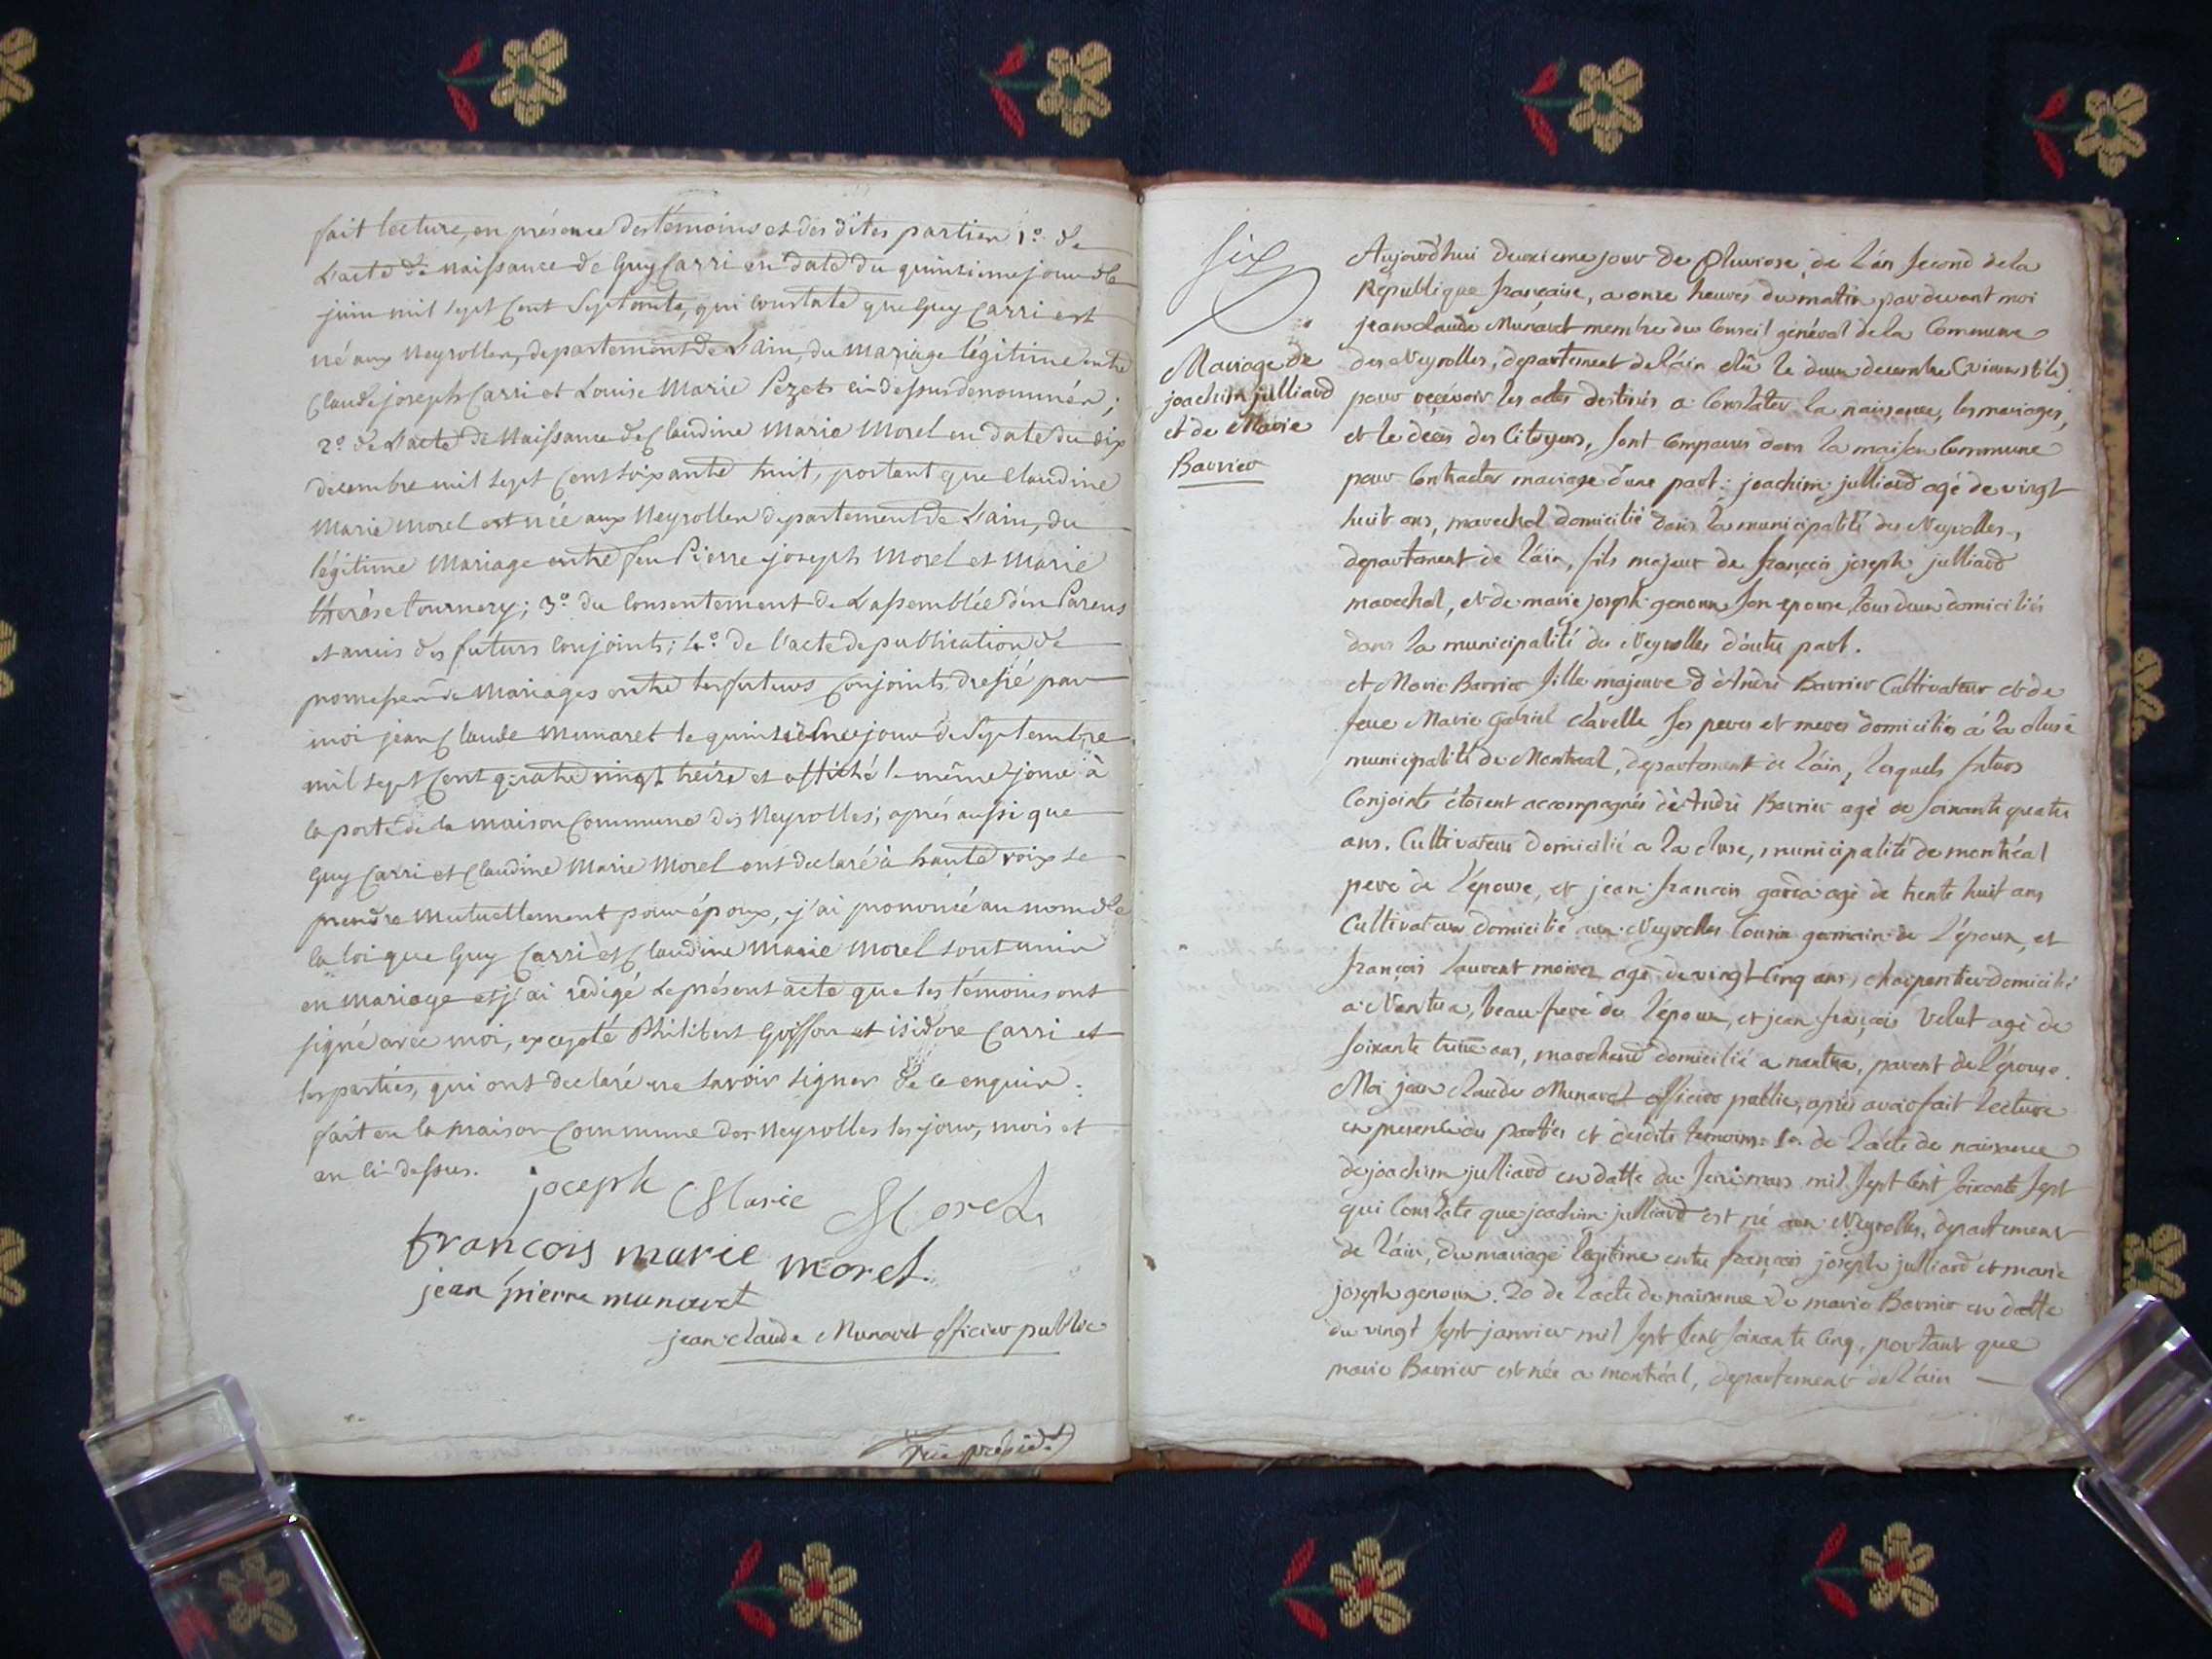 fait lecture, en présence des témoins et des dites parties 1.° de
L'acte de naissance de Guy Carri en date du quinzieme jour de
juin mil sept Cent Septante, qui constate que Guy Carri est
né aux Neyrolles, departement de L'ain, du mariage légitime entre
Claude joseph Carri et Louise Marie Pezet ci dessus denommés;
2.° de L'acte de Naissance de Claudine Marie Morel en date du dix
decembre mil sept Cent soixante huit, portant que Claudine
Marie Morel est née aux Neyrolles departement de L'ain, du
légitime Mariage entre feu Pierre joseph Morel et Marie
therese tournery; 3.° du Consentement de L'assemblée des Parens
et amis des futurs Conjoints; 4.° de l'acte de publication de
promesses de Mariages entre les futurs Conjoints dressé par
moi jean Claude Munaret le quinzieme jour de Septembre
mil sept Cent quatre vingt treize et affiché le même jour à
la porte de la maison Commune des Neyrolles; après aussi que
Guy Carri et Claudine Marie Morel ont declaré à haute voix se
prendre Mutuellement pour époux, j'ai prononcé au nom de
la loi que Guy Carri et Claudine Marie Morel sont unis
en mariage et j'ai rédigé le présent acte que les témoins ont
signé avec moi, excepté Philibert Goiffon et isidore Carri et
les parties, qui ont declaré ne savoir signer de ce enquis.
fait en la Maison Commune des Neyrolles les jour, mois et
an ci dessus.
joceph Marie Morel
francois marie morel
jean pierre munaret
jean claude Munaret officier public
vice présid.t
six
Mariage de
joachim julliard
et de Marie
Barrier
Aujourd'hui deuxieme jour de Pluviose, de l'an second de la
Republique française, a onze heures du matin par devant moi
jean claude Munaret membre du Conseil général de la Commune
des Neyrolles, departement de l'ain élu le deux decembre (vieux stile)
pour recevoir les actes destinés a Constater la naissance, les mariages,
et le décès des Citoyens, sont Comparus dans la maison Commune
pour Contracter mariage d'une part: joachim julliard agé de vingt
huit ans, marechal domicilié dans la municipalité des Neyrolles,
departement de l'ain, fils majeur de françois joseph julliard
marechal, et de marie joseph genoux son epouse, tous deux domiciliés
dans la municipalité des Neyrolles d'autre part.
et Marie Barrier fille majeure d'André Barrier Cultivateur et de
feue Marie Gabriel Clavelle ses peres et meres domiciliés á la cluse
municipalité de Montreal, departement de l'ain, lesquels futurs
Conjoints étoient accompagnés d'André Barrier agé de soixante quatre
ans. Cultivateur domicilié a la cluse, municipalité de montréal
pere de l'épouse, et jean françois agé de trente huit ans
Cultivateur domicilié aux Neyrolles Cousin germain de l'époux, et
françois laurent agé de vingt Cinq ans, charpentier domicilié
a Nantua, beau frere de l'époux, et jean françois Velut agé de
soixante ans, marchand domicilié a nantua, parent de l'épouse.
Moi jean Claude Munaret officier public, après avoir fait lecture
en presence des parties et desdits temoins: 1o. de l'acte de naissance
de joachim julliard en datte du seize mars mil sept Cent soixante sept
qui Constate que joachim julliard est né aux Neyrolles, departement
de l'ain, du mariage légitime entre françois joseph julliard et marie
joseph genoux. 2o de l'acte de naissance de marie Barrier en datte
du vingt sept janvier mil sept Cent soixante Cinq, portant que
marie Barrier est née a montréal, departement de l'ain